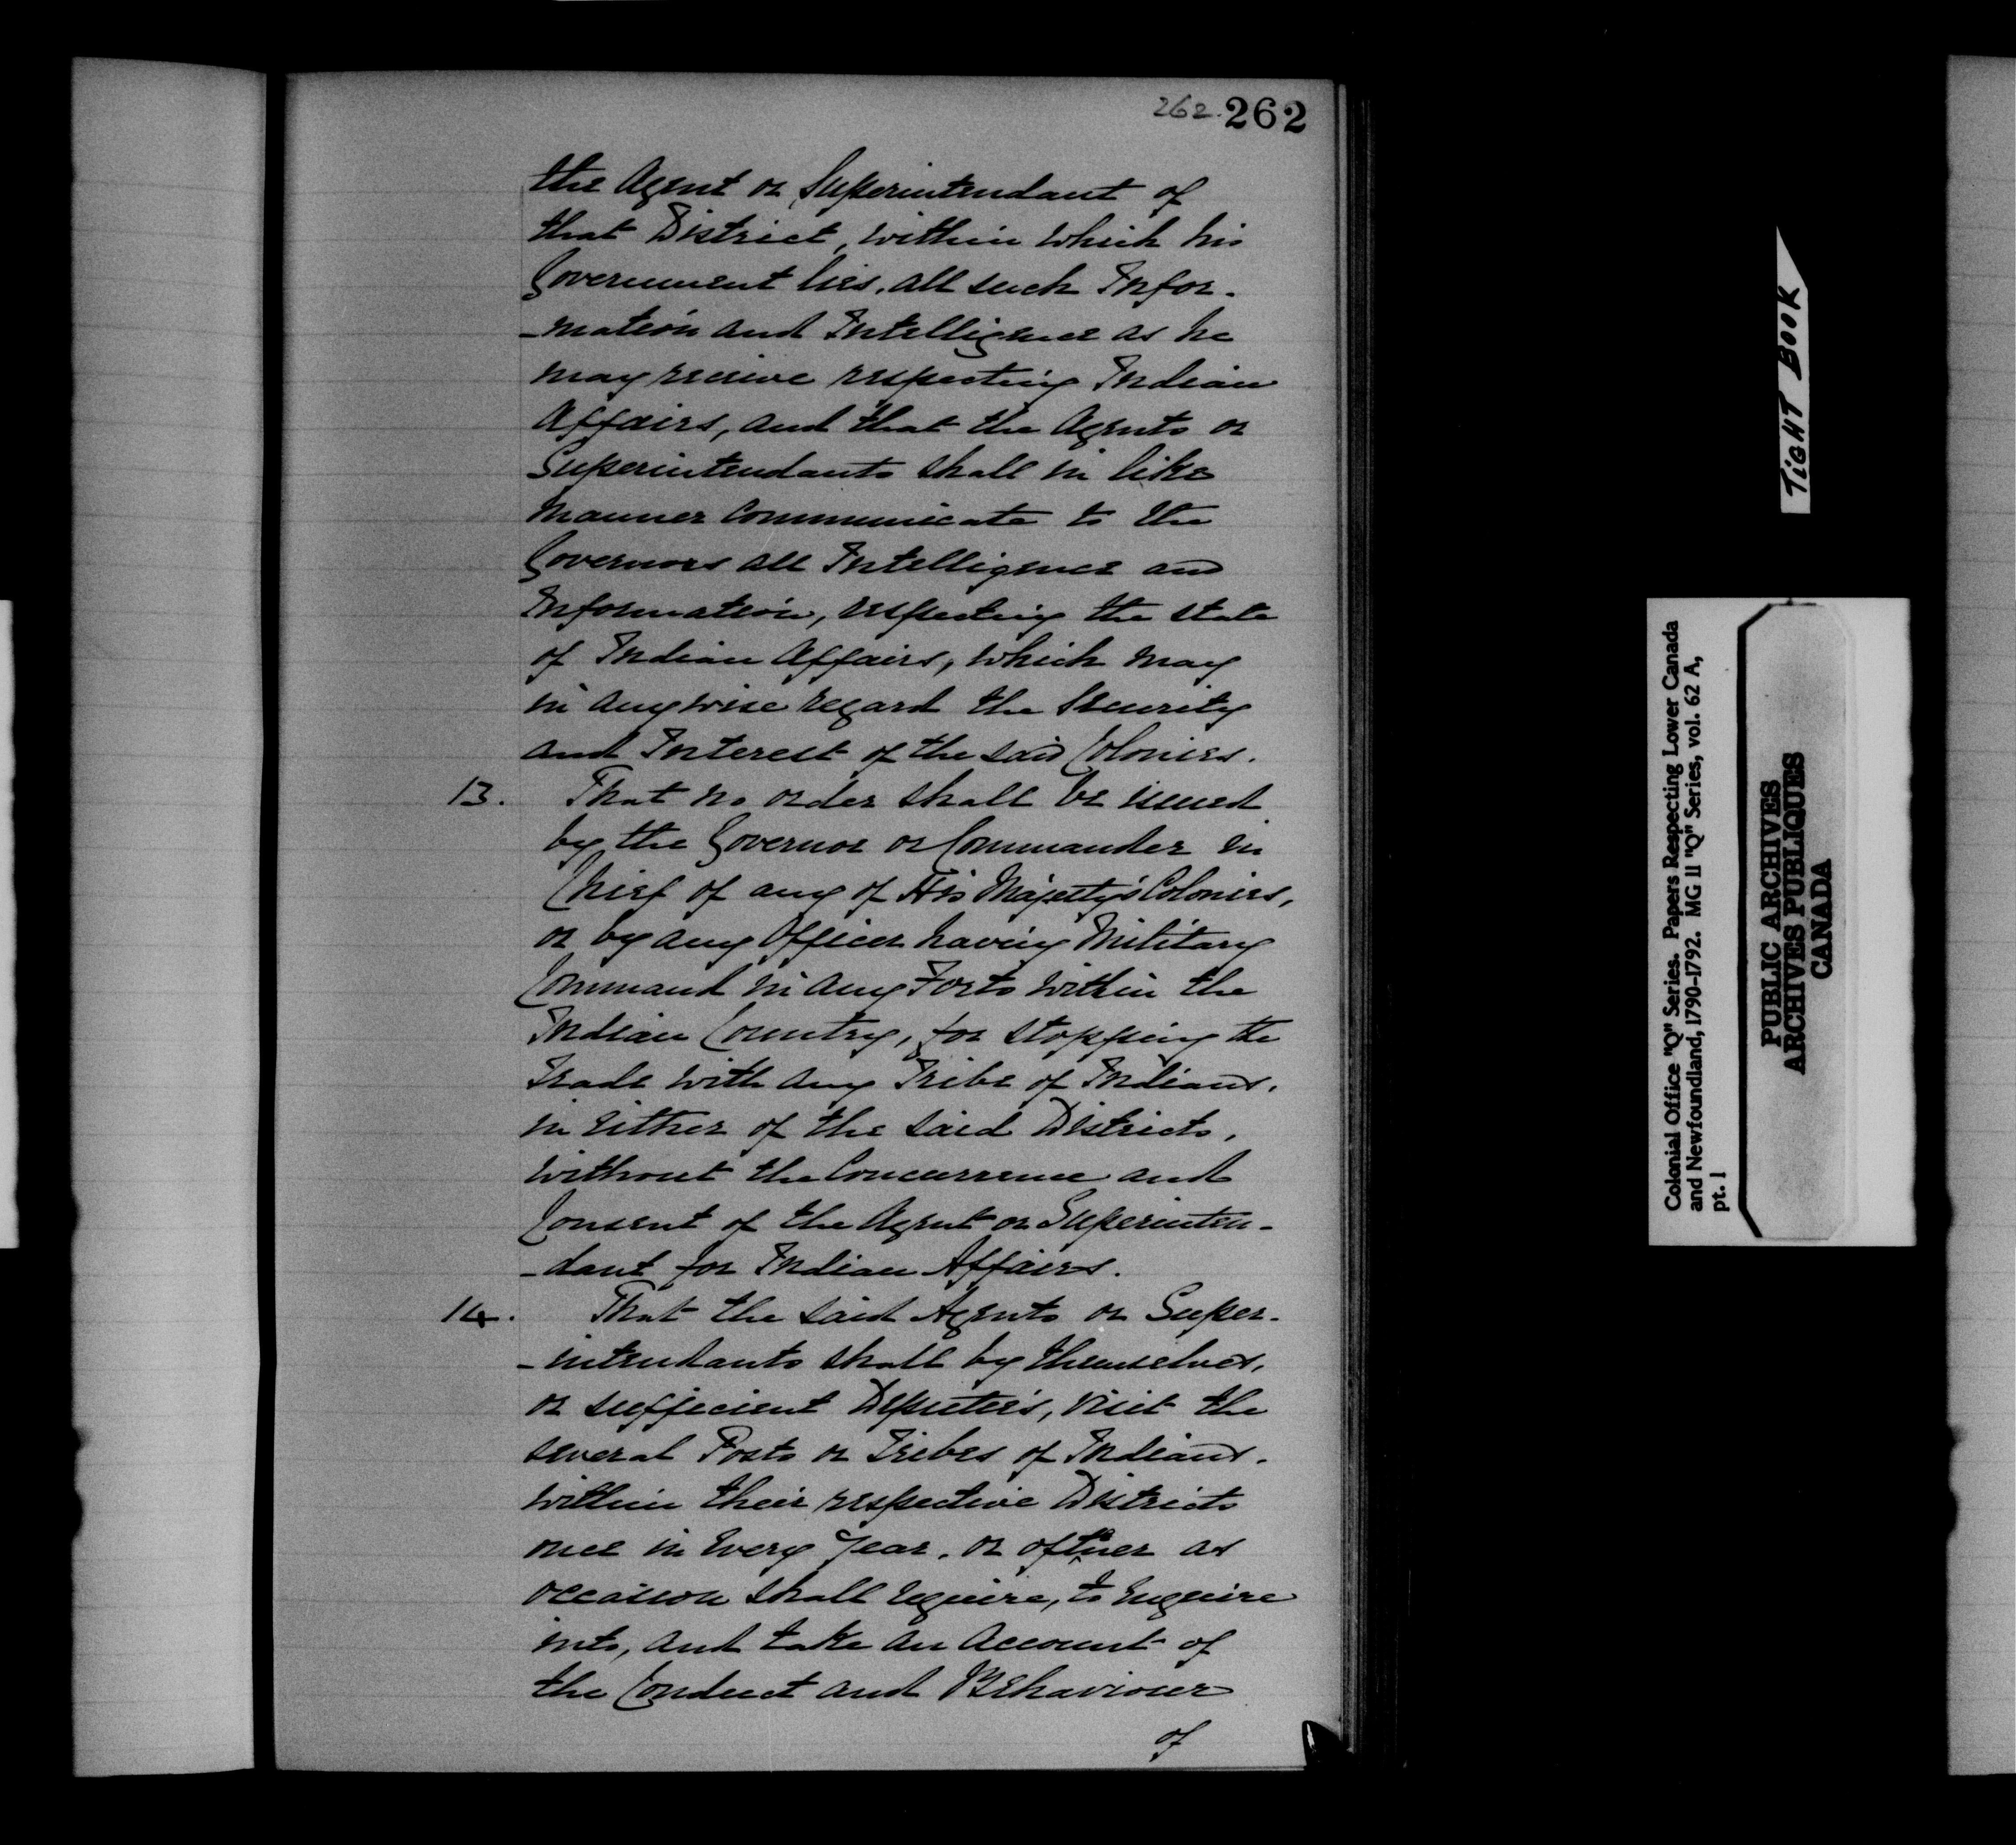 262. 262
the Agent or Superintendant of
that District, within which his
Government lies, all such Infor-
-mation and Intelligence as he
may receive respecting Indian
Affairs, and that the Agents or
Superintendants shall in like
Manner Communicate to the
Governors all Intelligence and
Information, respecting the state
of Indian Affairs, which may
in any wise regard the Security
and Interest of the said Colonies.
13. That no order shall be issued
by the Governor or Commander in
Chief of any of His Majesty's Colonies,
or by any Officer having Military
Command in any Forts within the
Indian Country, for stopping the
Trade with any Tribe of Indians,
in Either of the said Districts,
without the Concurrence and
Consent of the Agent or Superinten-
-dant for Indian Affairs.
14. That the said Agents or Super-
-intendants shall by themselves,
or sufficient Deputies, visit the
several Posts or Tribes of Indians,
within their respective Districts
once in Every Year, or oftener as
occasion shall require, to Enquire
into, and take an Account of
the Conduct and Behaviour
of
TIGHT BOOK
Colonial Office "Q" Series. Papers Respecting Lower Canada
and Newfoundland, 1790-1792. MG 11 "Q" Series, vol. 62 A,
pt. 1
PUBLIC ARCHIVES
ARCHIVES PUBLIQUES
CANADA